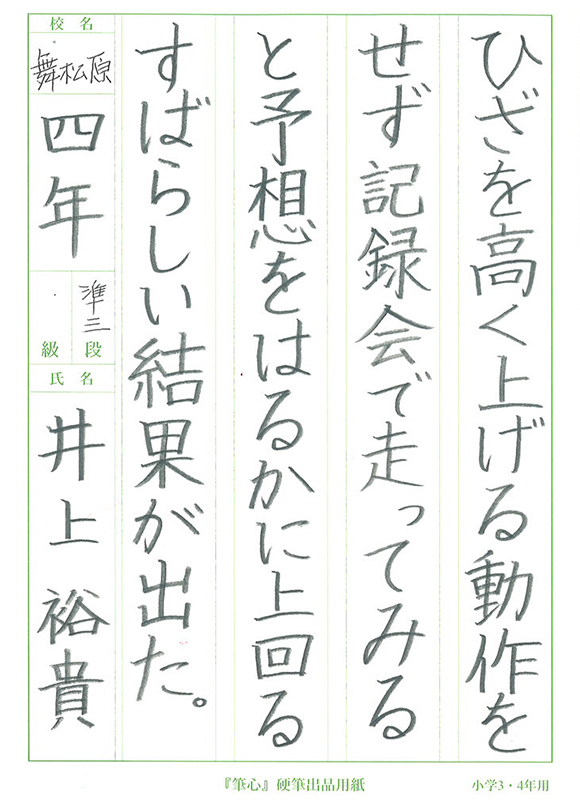 ひざを高く上げる動作を
せず記録会で走ってみる
と予想をはるかに上回る
すばらしい結果が出た。
校名
舞松原
四年
準三
段
級
氏名
井上裕貴
『筆心』硬筆出品用紙
小学3・4年用